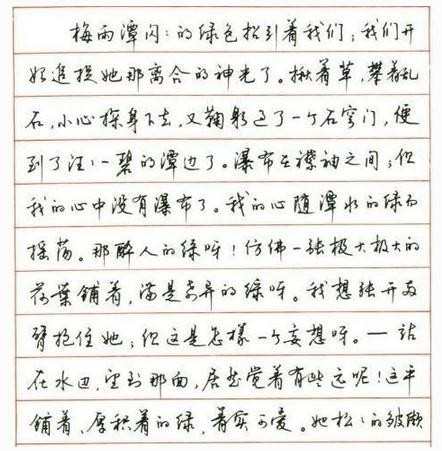 梅雨潭闪:的绿色招引着我们;我们开
始追捉她那离合的神光了。揪着草,攀着乱
石,小心探身下去,又鞠躬过了一个石穹门,便
到了汪:一碧的潭边了。瀑布在襟袖之间;但
我的心中没有瀑布了。我的心随潭水的绿而
摇荡。那醉人的绿呀!仿佛一张极大极大的
荷葉铺着,满是奇异的绿呀。我想张开两
臂抱住她;但这是怎样一个妄想呀。——站
在水边,望到那面,居然觉着有些远呢!这平
铺着,厚积着的绿,着实可爱。她松:的皱缬